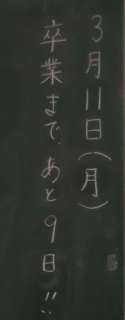 3月11日(月)
卒業まで、あと9日!!